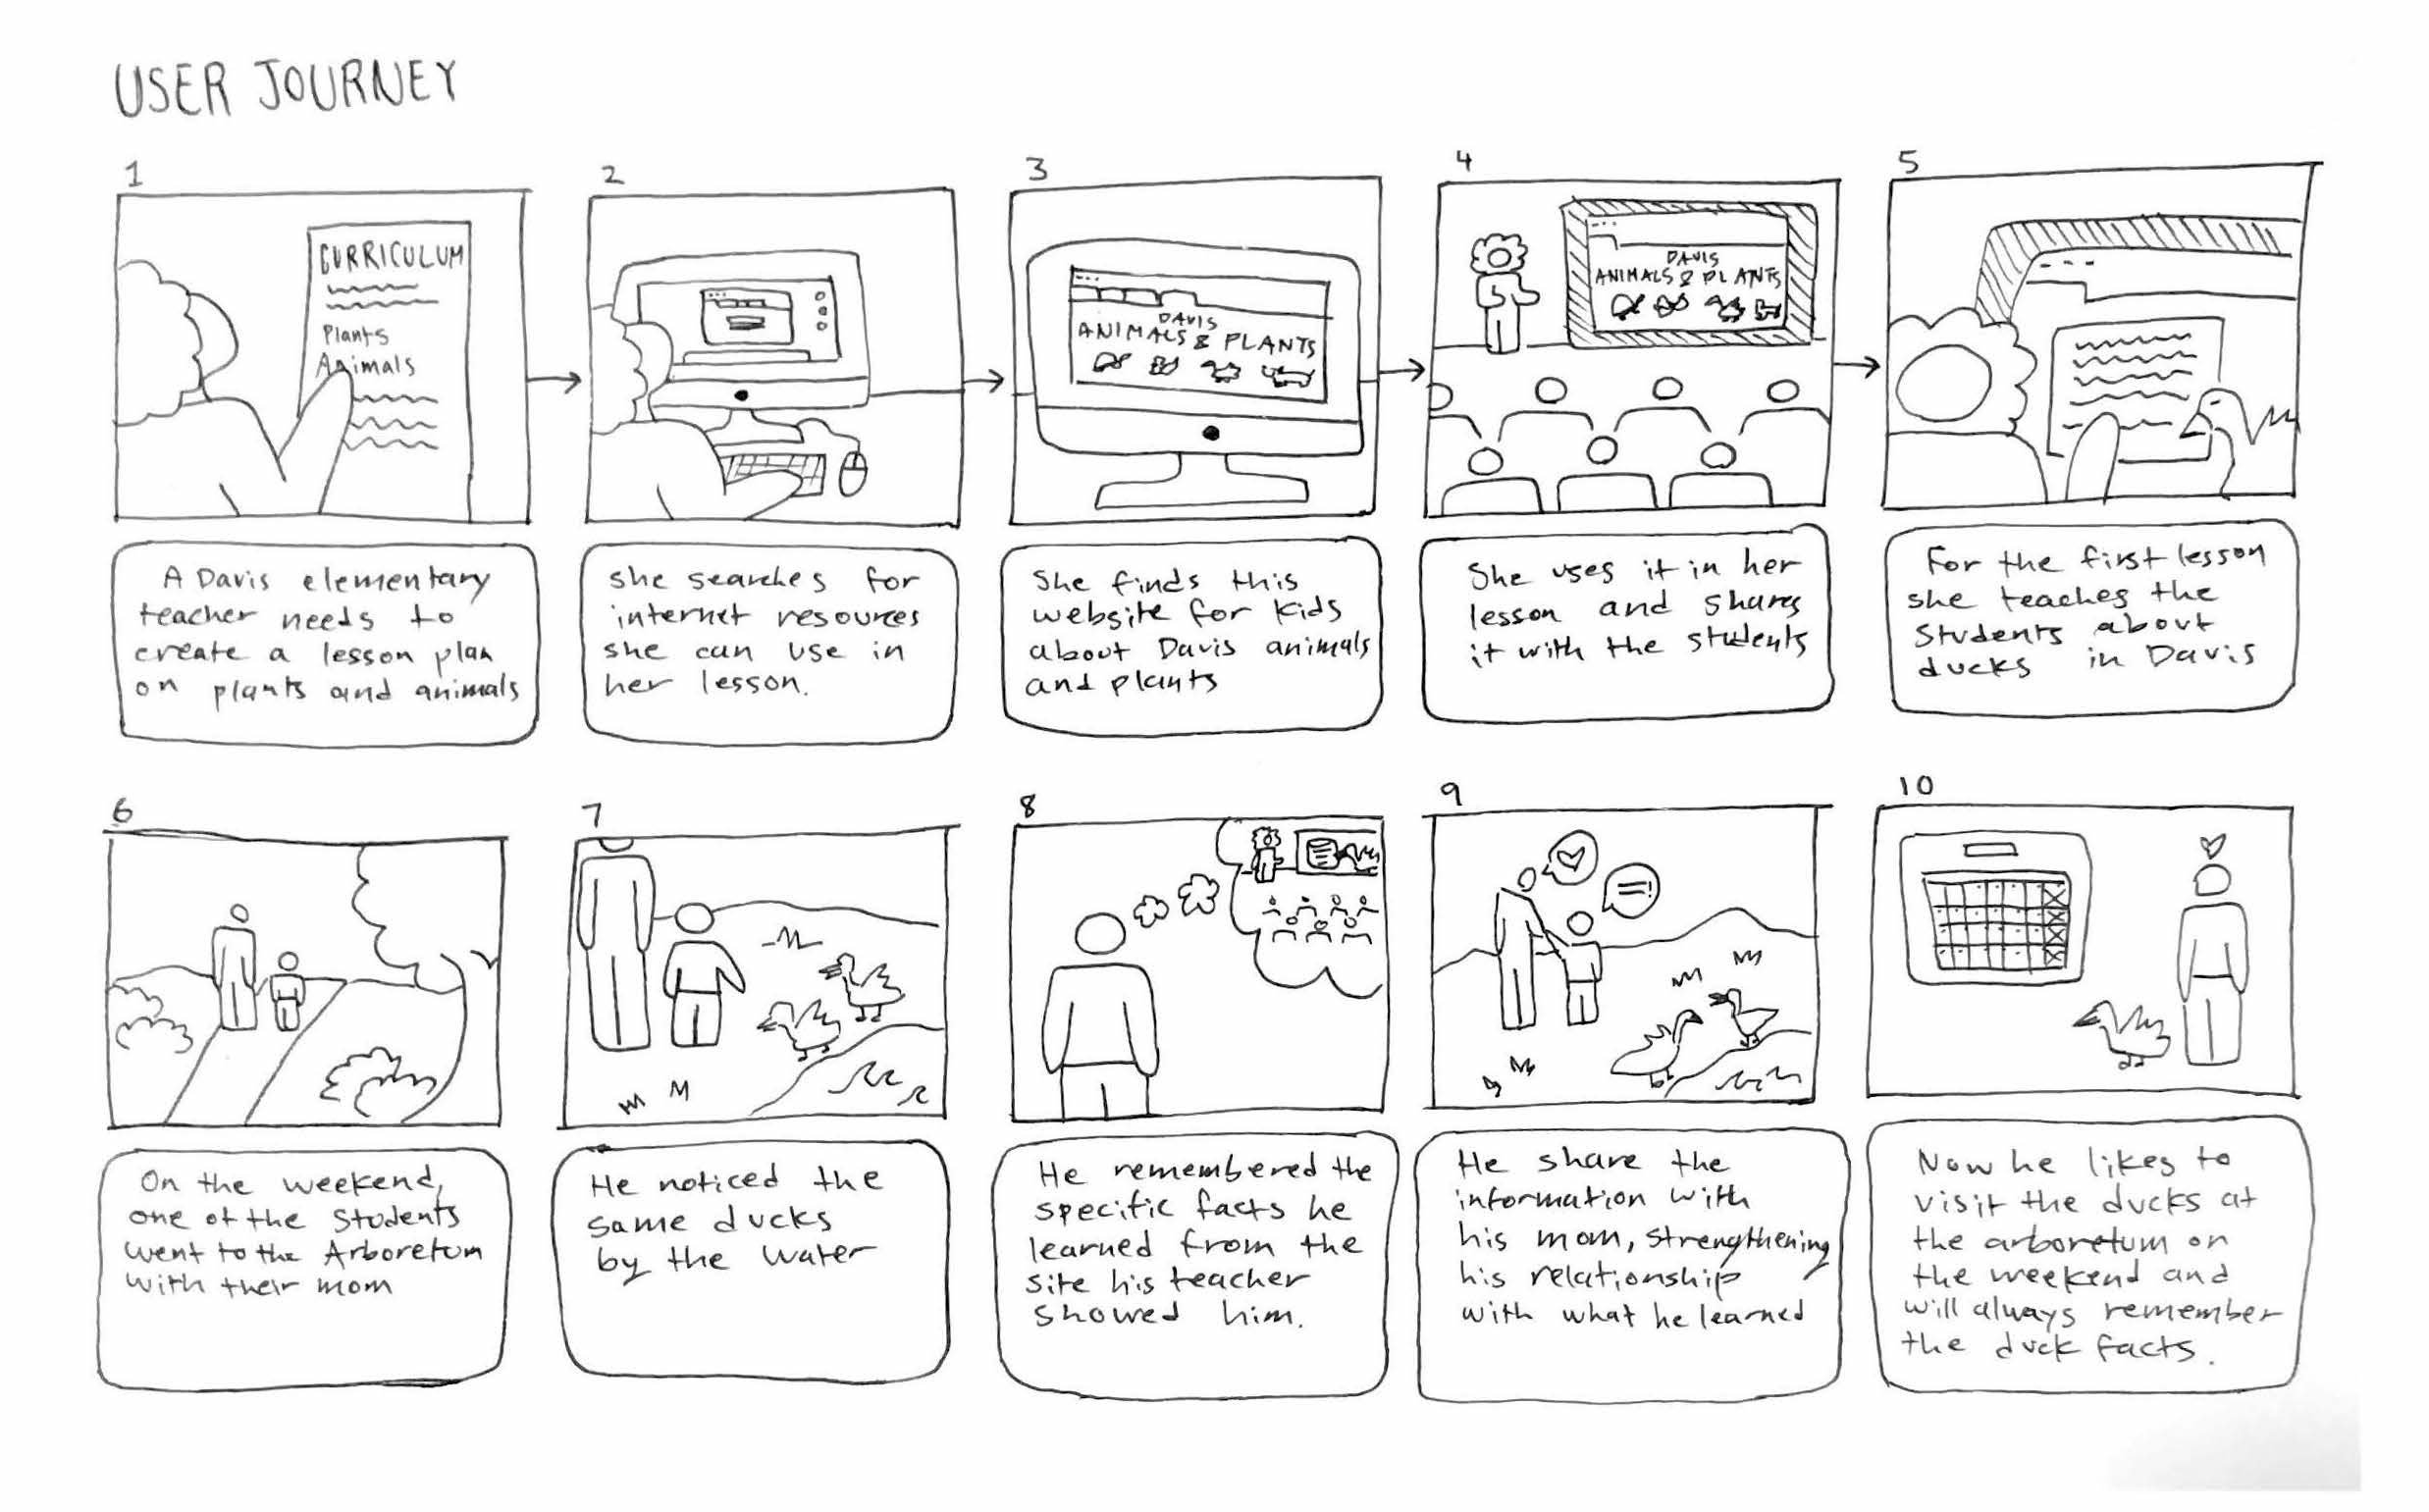 USER JOURNEY
1
CURRICULUM
Plants
Animals
A Davis elementary
teacher needs to
create a lesson plan
on plants and animals
2
she searches for
internet resources
she can use in
her lesson.
3
DAVIS
ANIMALS & PLANTS
She finds this
website for kids
about Davis animals
and plants
4
DAVIS
ANIMALS & PLANTS
She uses it in her
lesson and shares
it with the students
5
For the first lesson
she teaches the
students about
ducks in Davis
6
On the weekend,
one of the students
went to the Arboretum
with their mom
7
He noticed the
same ducks
by the water
8
He remembered the
specific facts he
learned from the
site his teacher
showed him.
9
He share the
information with
his mom, strengthening
his relationship
with what he learned
10
Now he likes to
visit the ducks at
the arboretum on
the weekend and
will always remember
the duck facts.